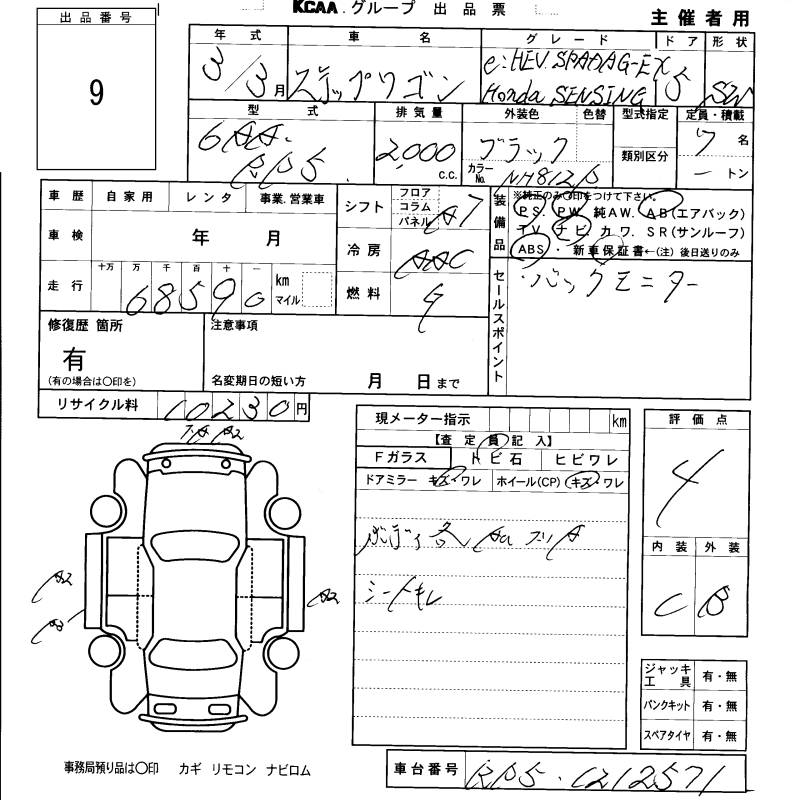 KCAA.グループ 出品票
主催者用
出品番号
9
年式 車名 グレード ドア 形状
3/3月 ステップワゴン e:HEV.SPADAG-EX 5 SW
Honda SENSING
型式 排気量 外装色 色替 型式指定 定員・積載
6AA. 2,000 ブラック 7名
RP5. c.c. カラーNo. NH812P 類別区分 ートン
車歴 自家用 レンタ 事業.営業車
車検 年 月
走行 十万 万 千 百 十 一
68590 km マイル
シフト フロア コラム パネル A7
冷房 AAC
燃料 G
装備品
※純正のみ○印をつけて下さい。
PS. PW 純AW. AB(エアバック)
TV ナビ カワ. SR(サンルーフ)
ABS. 新車保証書←(注)後日送りのみ
セールスポイント
・バックモニター
修復歴 箇所
有
(有の場合は○印を)
注意事項
名変期日の短い方 月 日まで
リサイクル料 10230円
現メーター指示 km
【査定員記入】
Fガラス トビ石 ヒビワレ
ドアミラー キズ・ワレ ホイール(CP) キズ・ワレ
ボディ各
シートキレ
評価点
4
内装 外装
C B
A2
A2
A2
ジャッキ工具 有・無
パンクキット 有・無
スペアタイヤ 有・無
事務局預り品は○印 カギ リモコン ナビロム
車台番号 RP5-1212571